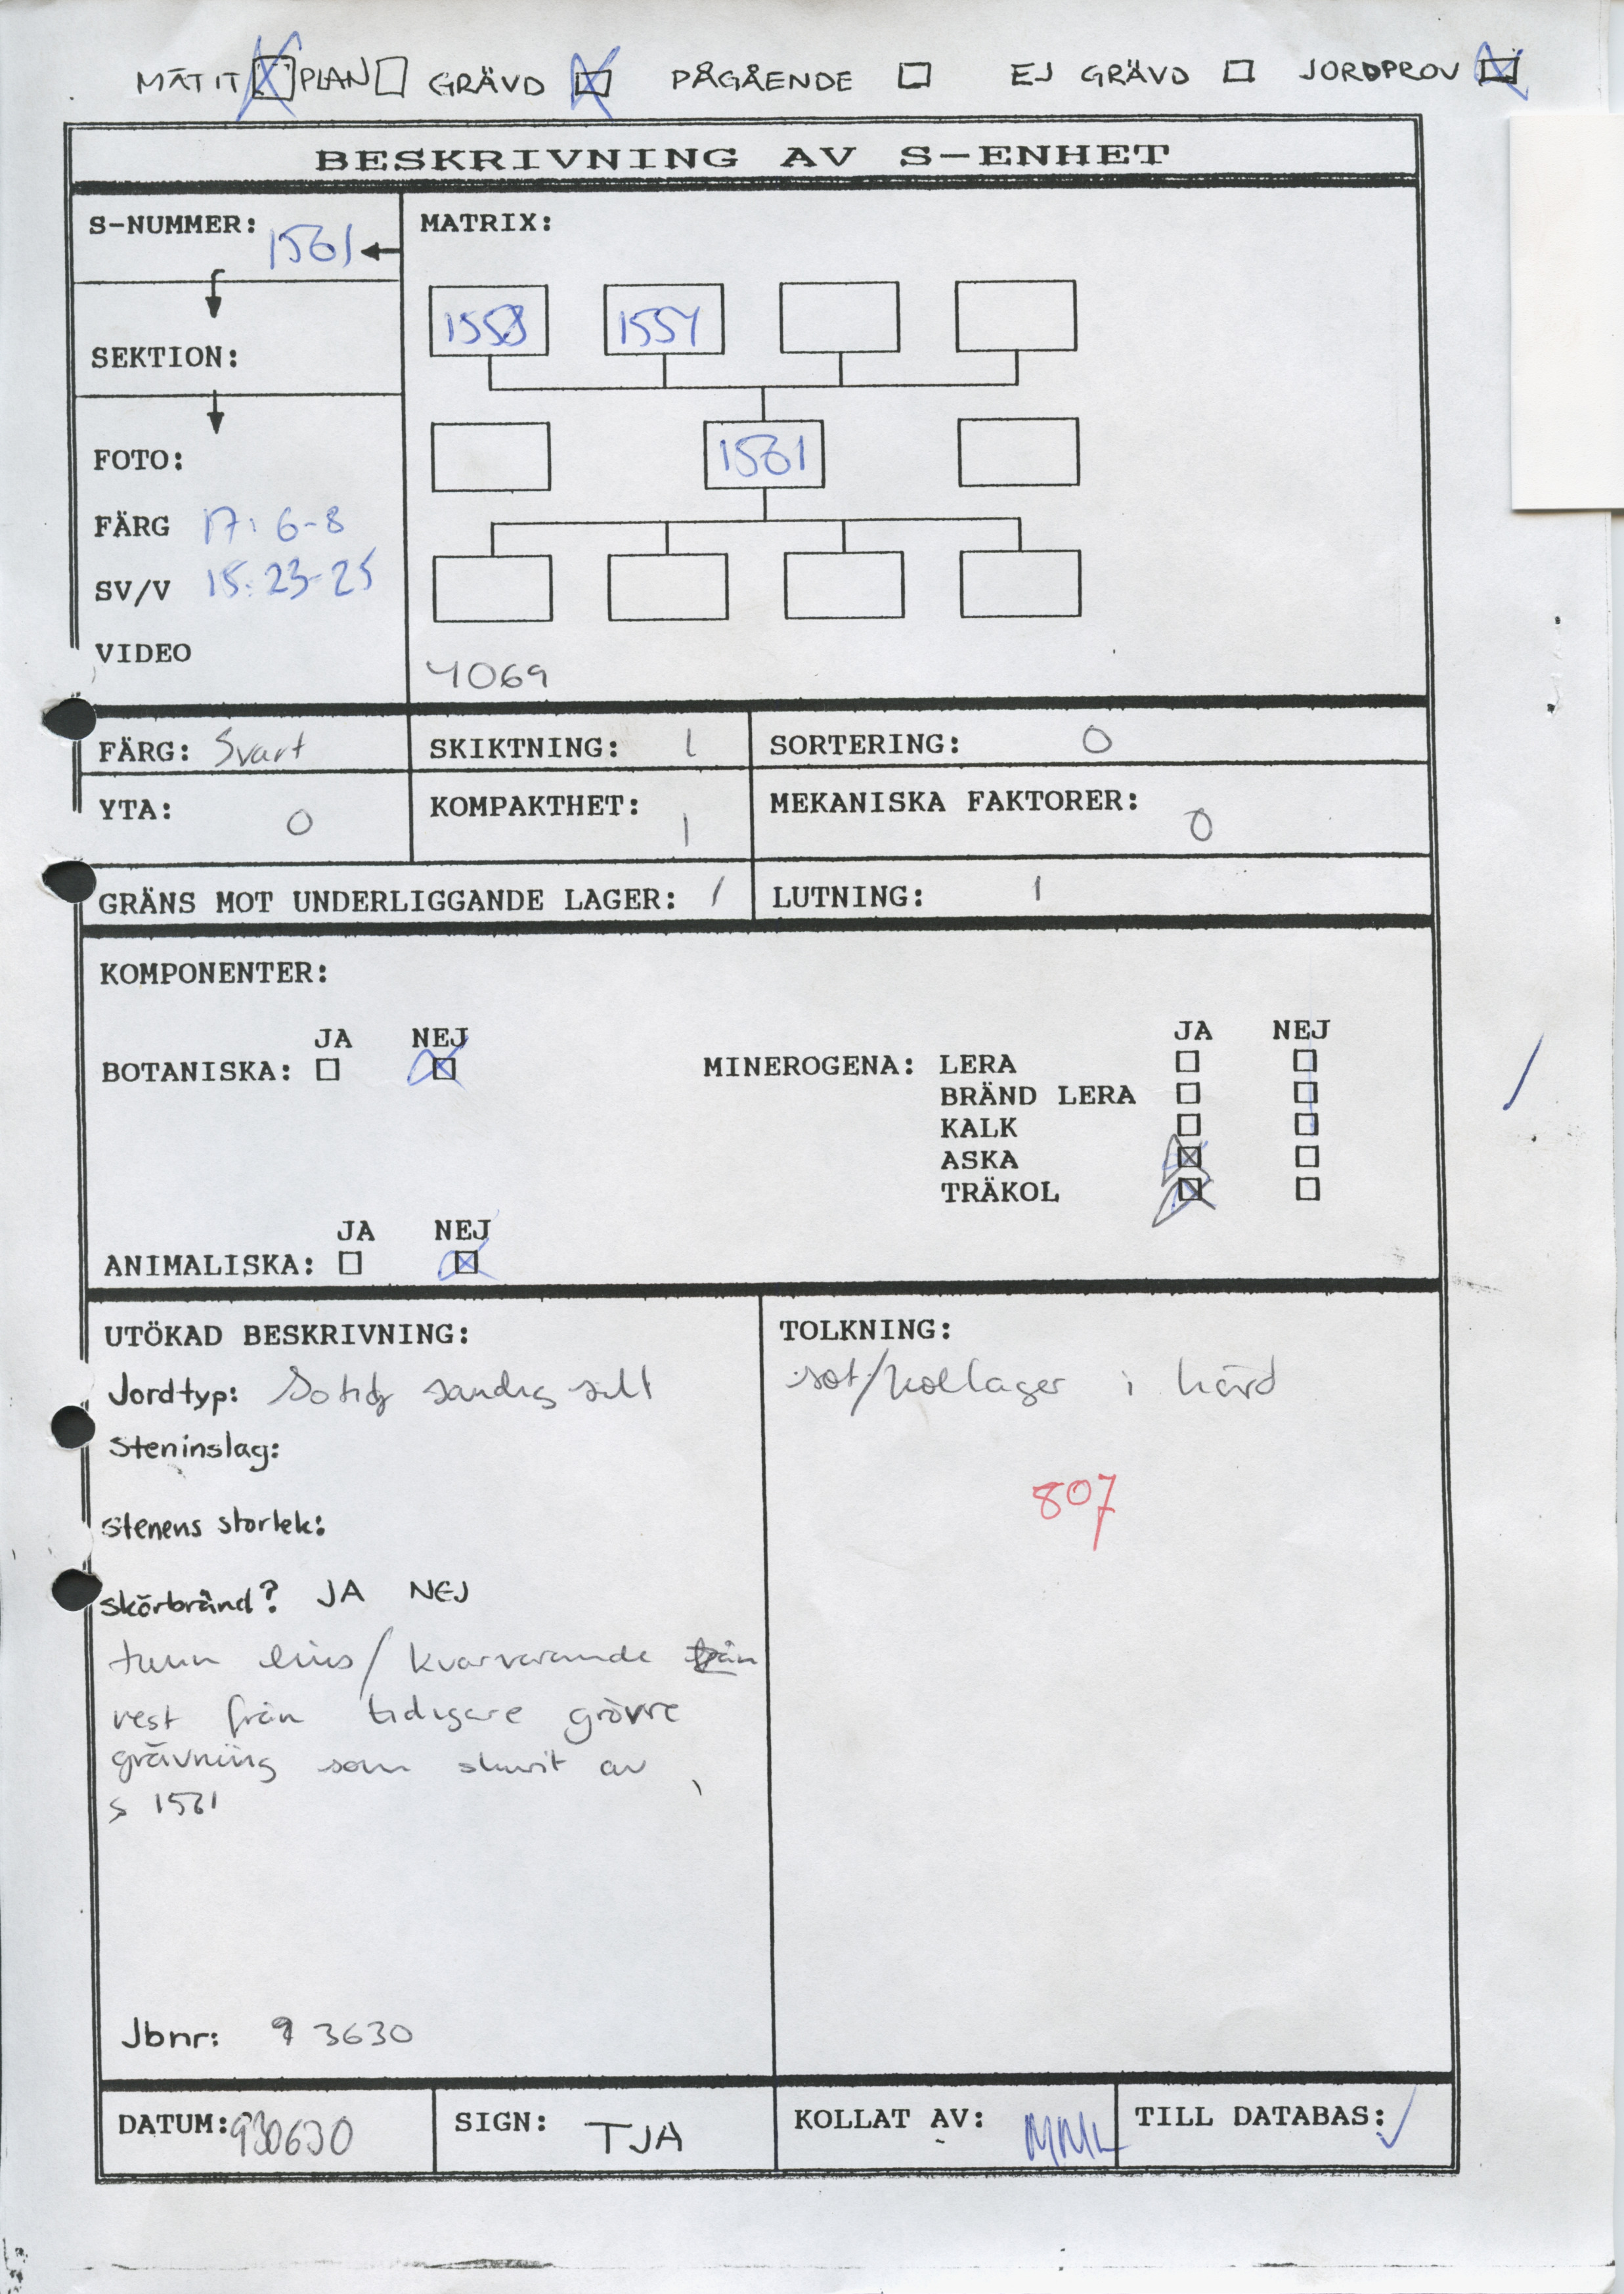 MÄT IT PLAN GRÄVD PÅGÅENDE EJ GRÄVD JORDPROV
BESKRIVNING AV S-ENHET
S-NUMMER: 1561
MATRIX:
1558 1554
SEKTION:
1561
FOTO:
FÄRG 17: 6-8
SV/V 15: 23-25
VIDEO
4069
FÄRG: Svart SKIKTNING: 1 SORTERING: 0
YTA: 0 KOMPAKTHET: 1 MEKANISKA FAKTORER: 0
GRÄNS MOT UNDERLIGGANDE LAGER: 1 LUTNING: 1
KOMPONENTER:
JA NEJ JA NEJ
BOTANISKA: MINEROGENA: LERA
BRÄND LERA
KALK
ASKA
TRÄKOL
JA NEJ
ANIMALISKA:
UTÖKAD BESKRIVNING: TOLKNING:
Jordtyp: Sotig sandig silt sot/kollager i härd
Steninslag:
807
Stenens storlek:
Skörbränd? JA NEJ
tunn lins/kvarvarande från
rest från tidigare grövre
grävning som skurit av
s 1561
Jbnr: 9 3630
DATUM: 930630 SIGN: TJA KOLLAT AV: MML TILL DATABAS: